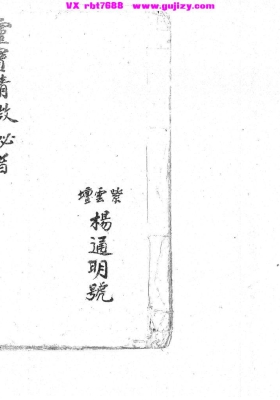 VX rbt7688 www.gujizy.com
紫雲壇
楊通明號
靈寶請赦必旨